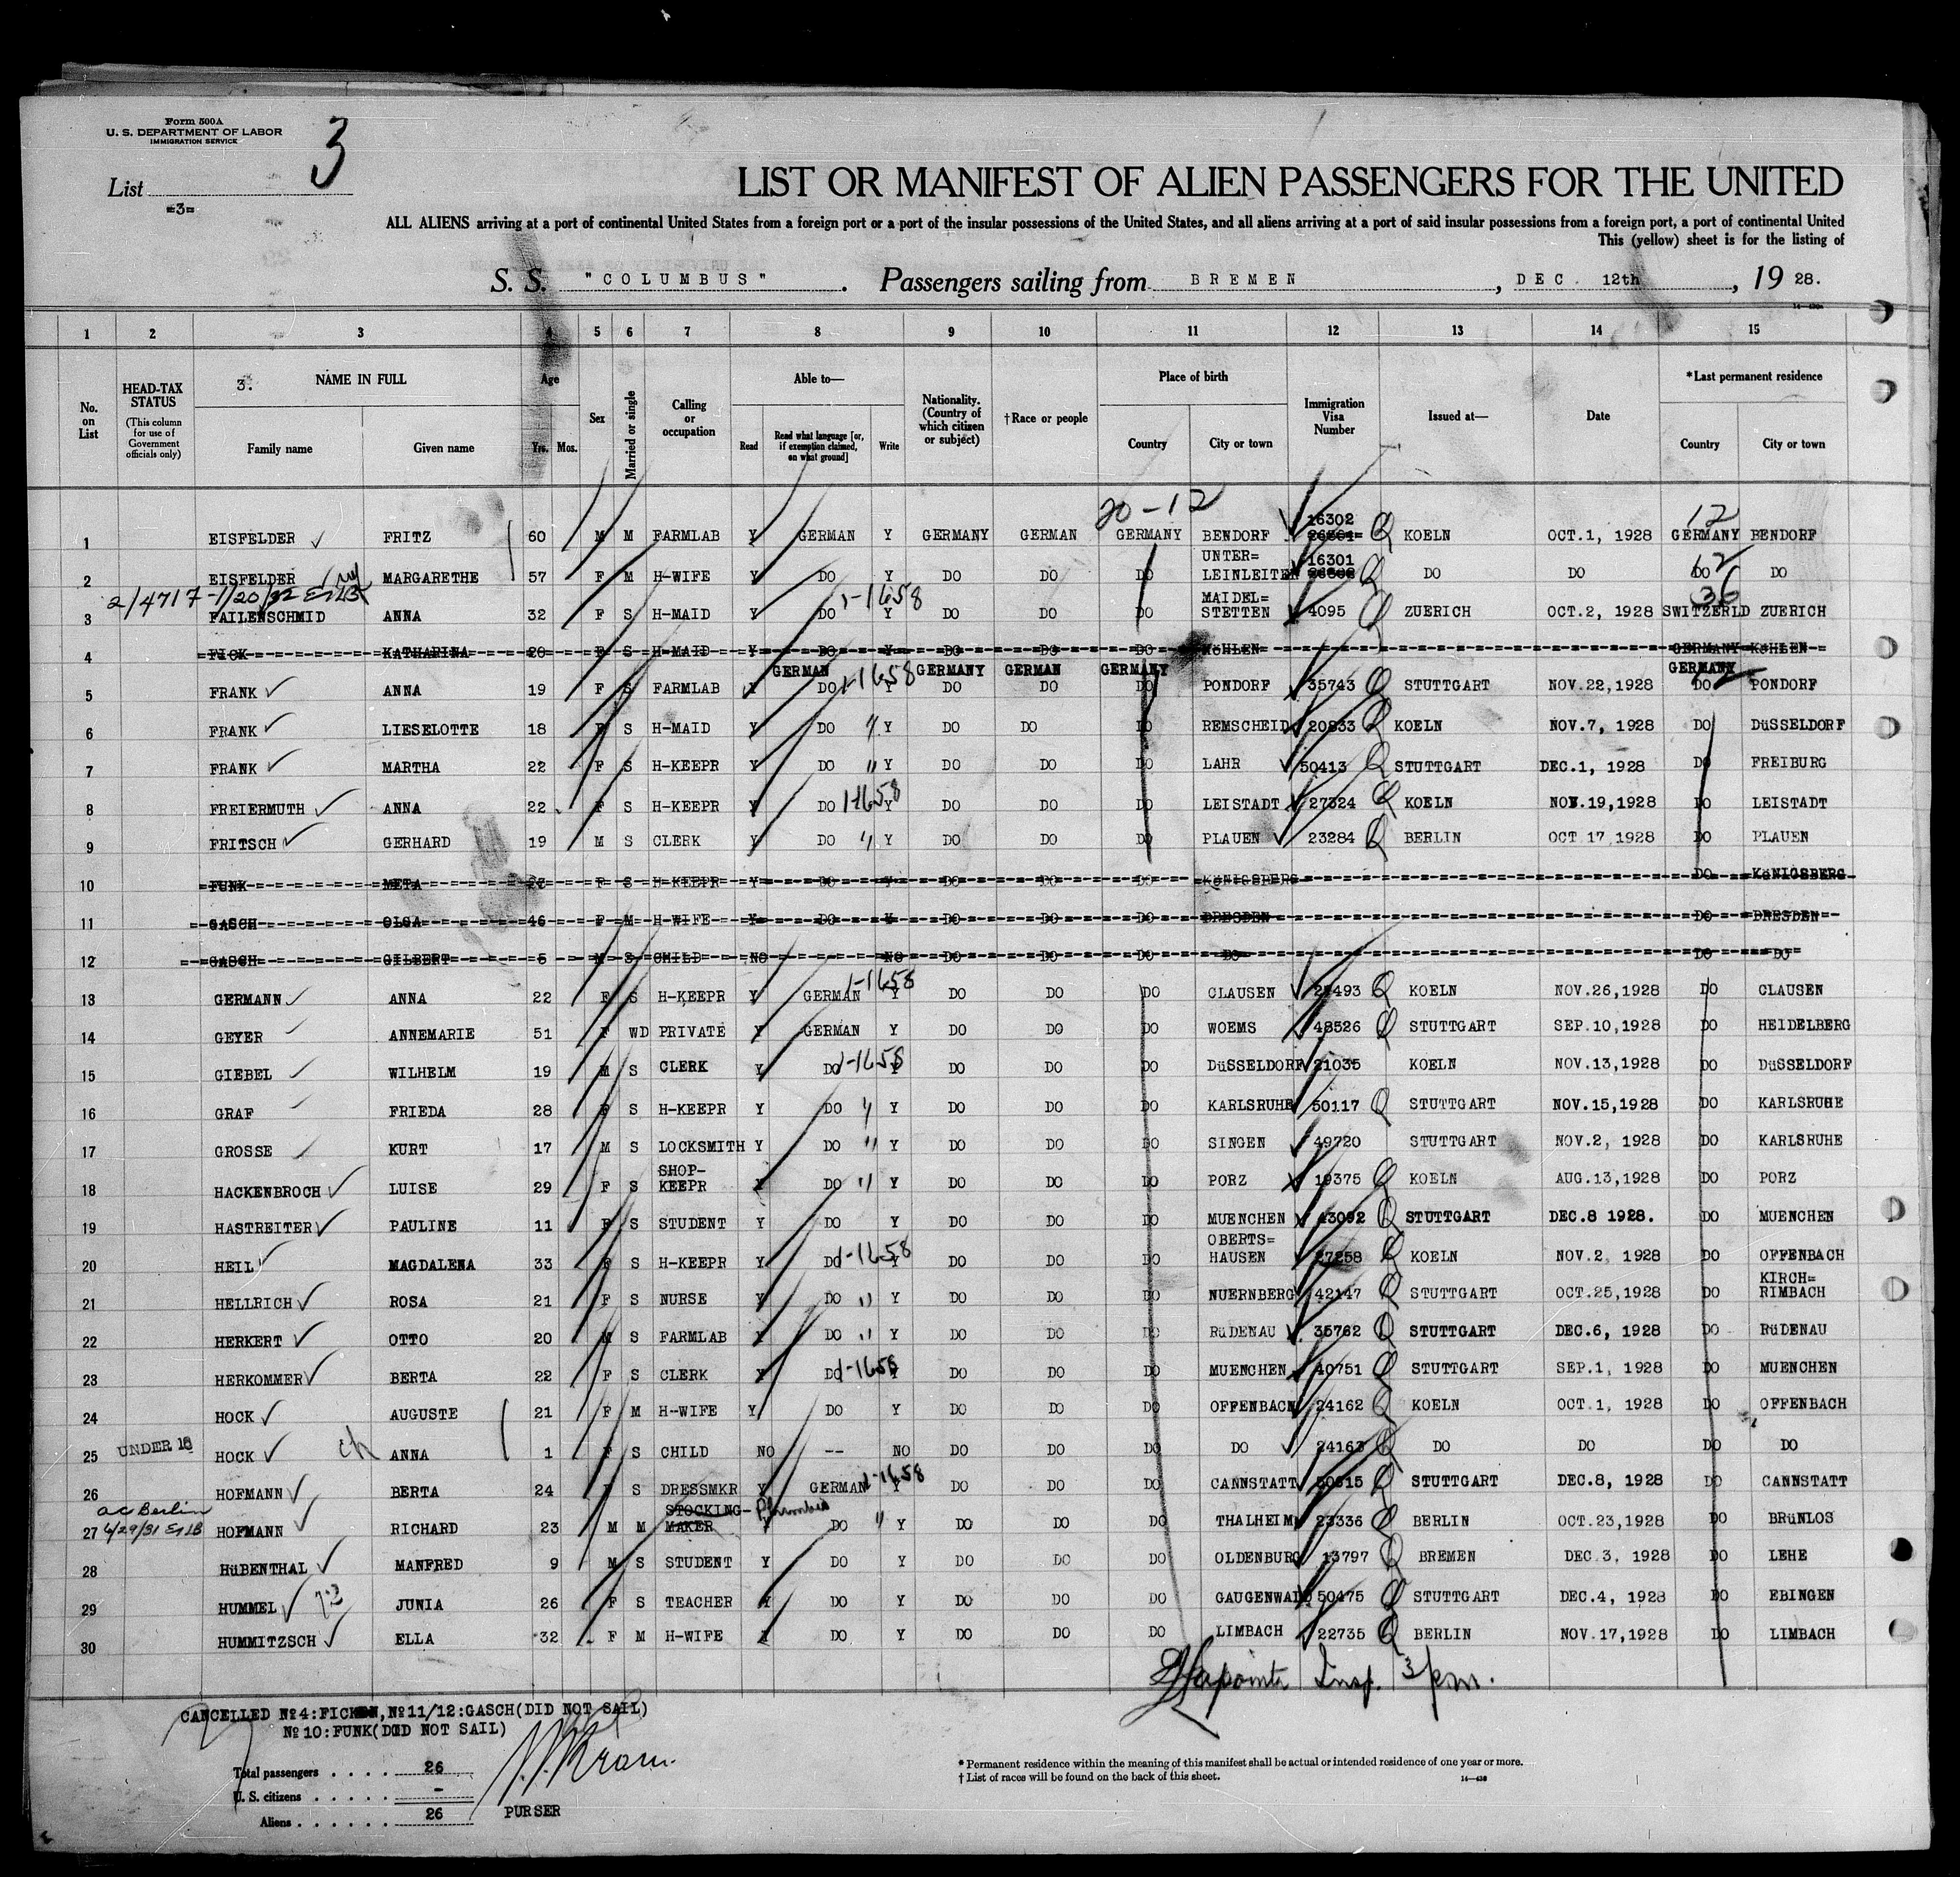 Form 500A
U. S. DEPARTMENT OF LABOR
IMMIGRATION SERVICE
3
List
=3=
LIST OR MANIFEST OF ALIEN PASSENGERS FOR THE UNITED
ALL ALIENS arriving at a port of continental United States from a foreign port or a port of the insular possessions of the United States, and all aliens arriving at a port of said insular possessions from a foreign port, a port of continental United
This (yellow) sheet is for the listing of
S. S. "COLUMBUS". Passengers sailing from BREMEN, DEC. 12th, 19 28.
1 2 3 4 5 6 7 8 9 10 11 12 13 14 15
No. on List
HEAD-TAX STATUS
(This column for use of Government officials only)
3. NAME IN FULL
Family name Given name
Age
Yrs. Mos.
Sex
Married or single
Calling or occupation
Able to—
Read Read what language [or, if exemption claimed, on what ground] Write
Nationality. (Country of which citizen or subject)
†Race or people
Place of birth
Country City or town
Immigration Visa Number
Issued at—
Date
*Last permanent residence
Country City or town
20-12 12
1 EISFELDER FRITZ 60 M M FARMLAB Y GERMAN Y GERMANY GERMAN GERMANY BENDORF 16302 KOELN OCT.1, 1928 GERMANY BENDORF
2 EISFELDER MARGARETHE 57 F M H-WIFE Y DO Y DO DO DO UNTER= LEINLEITER 16301 DO DO DO DO
2/4717-1/20/32
3 FAILENSCHMID ANNA 32 F S H-MAID Y DO 1-1658 Y DO DO DO MAIDEL= STETTEN 4095 ZUERICH OCT.2, 1928 SWITZERLD ZUERICH
4 FICK KATHARINA 20 F S H-MAID Y DO Y DO DO DO KöHLEN GERMANY KöHLEN
GERMAN GERMANY GERMAN GERMANY GERMANY
5 FRANK ANNA 19 F S FARMLAB Y DO 1-1658 Y DO DO DO PONDORF 35743 STUTTGART NOV.22,1928 DO PONDORF
6 FRANK LIESELOTTE 18 F S H-MAID Y DO " Y DO DO DO REMSCHEID 20833 KOELN NOV.7, 1928 DO DüSSELDORF
7 FRANK MARTHA 22 F S H-KEEPR Y DO " Y DO DO DO LAHR 50413 STUTTGART DEC.1, 1928 DO FREIBURG
8 FREIERMUTH ANNA 22 F S H-KEEPR Y DO 1-1658 Y DO DO DO LEISTADT 27324 KOELN NOV.19,1928 DO LEISTADT
9 FRITSCH GERHARD 19 M S CLERK Y DO " Y DO DO DO PLAUEN 23284 BERLIN OCT 17,1928 DO PLAUEN
10 FUNK META 27 F S H-KEEPR Y DO Y DO DO DO KöNIGSBERG DO KöNIGSBERG
11 GASCH OLGA 46 F M H-WIFE Y DO Y DO DO DO DRESDEN DO DRESDEN
12 GASCH GILBERT 5 M S CHILD NO NO DO DO DO DO DO DO
13 GERMANN ANNA 22 F S H-KEEPR Y GERMAN 1-1658 Y DO DO DO CLAUSEN KOELN NOV.26,1928 DO CLAUSEN
14 GEYER ANNEMARIE 51 F WD PRIVATE Y GERMAN Y DO DO DO WOEMS 48526 STUTTGART SEP.10,1928 DO HEIDELBERG
15 GIEBEL WILHELM 19 M S CLERK Y DO 1-1658 Y DO DO DO DüSSELDORF 21035 KOELN NOV.13,1928 DO DüSSELDORF
16 GRAF FRIEDA 28 F S H-KEEPR Y DO " Y DO DO DO KARLSRUHE 50117 STUTTGART NOV.15,1928 DO KARLSRUHE
17 GROSSE KURT 17 M S LOCKSMITH Y DO " Y DO DO DO SINGEN 49720 STUTTGART NOV.2, 1928 DO KARLSRUHE
18 HACKENBROCH LUISE 29 F S SHOP- KEEPR Y DO " Y DO DO DO PORZ 19375 KOELN AUG.13,1928 DO PORZ
19 HASTREITER PAULINE 11 F S STUDENT Y DO Y DO DO DO MUENCHEN 43092 STUTTGART DEC.8 1928. DO MUENCHEN
20 HEIL MAGDALENA 33 F S H-KEEPR Y DO 1-1658 Y DO DO DO OBERTS= HAUSEN 27258 KOELN NOV.2, 1928 DO OFFENBACH
21 HELLRICH ROSA 21 F S NURSE Y DO " Y DO DO DO NUERNBERG 42147 STUTTGART OCT.25,1928 DO KIRCH= RIMBACH
22 HERKERT OTTO 20 M S FARMLAB Y DO " Y DO DO DO RüDENAU 35762 STUTTGART DEC.6, 1928 DO RüDENAU
23 HERKOMMER BERTA 22 F S CLERK Y DO 1-1658 Y DO DO DO MUENCHEN 40751 STUTTGART SEP.1, 1928 DO MUENCHEN
24 HOCK AUGUSTE 21 F M H-WIFE Y DO Y DO DO DO OFFENBACH 24162 KOELN OCT.1, 1928 DO OFFENBACH
25 UNDER 16 HOCK ch ANNA 1 F S CHILD NO -- NO DO DO DO DO 24163 DO DO DO DO
26 HOFMANN BERTA 24 F S DRESSMKR Y GERMAN 1-1658 Y DO DO DO CANNSTATT 50615 STUTTGART DEC.8, 1928 DO CANNSTATT
ac Berlin
27 6/29/31 HOFMANN RICHARD 23 M M STOCKING- MAKER Plumber Y DO " Y DO DO DO THALHEIM 23336 BERLIN OCT.23,1928 DO BRüNLOS
28 HüBENTHAL MANFRED 9 M S STUDENT Y DO Y DO DO DO OLDENBURG 13797 BREMEN DEC.3, 1928 DO LEHE
29 HUMMEL JUNIA 26 F S TEACHER Y DO Y DO DO DO GAUGENWALD 50475 STUTTGART DEC.4, 1928 DO EBINGEN
30 HUMMITZSCH ELLA 32 F M H-WIFE Y DO Y DO DO DO LIMBACH 22735 BERLIN NOV.17,1928 DO LIMBACH
Lapointe Insp. 3 pm.
CANCELLED №4:FICK, №11/12:GASCH(DID NOT SAIL)
№10:FUNK(DID NOT SAIL)
Total passengers . . . . 26
U. S. citizens . . . . . -
Aliens . . . . . . 26
PURSER
* Permanent residence within the meaning of this manifest shall be actual or intended residence of one year or more.
† List of races will be found on the back of this sheet.
14—438